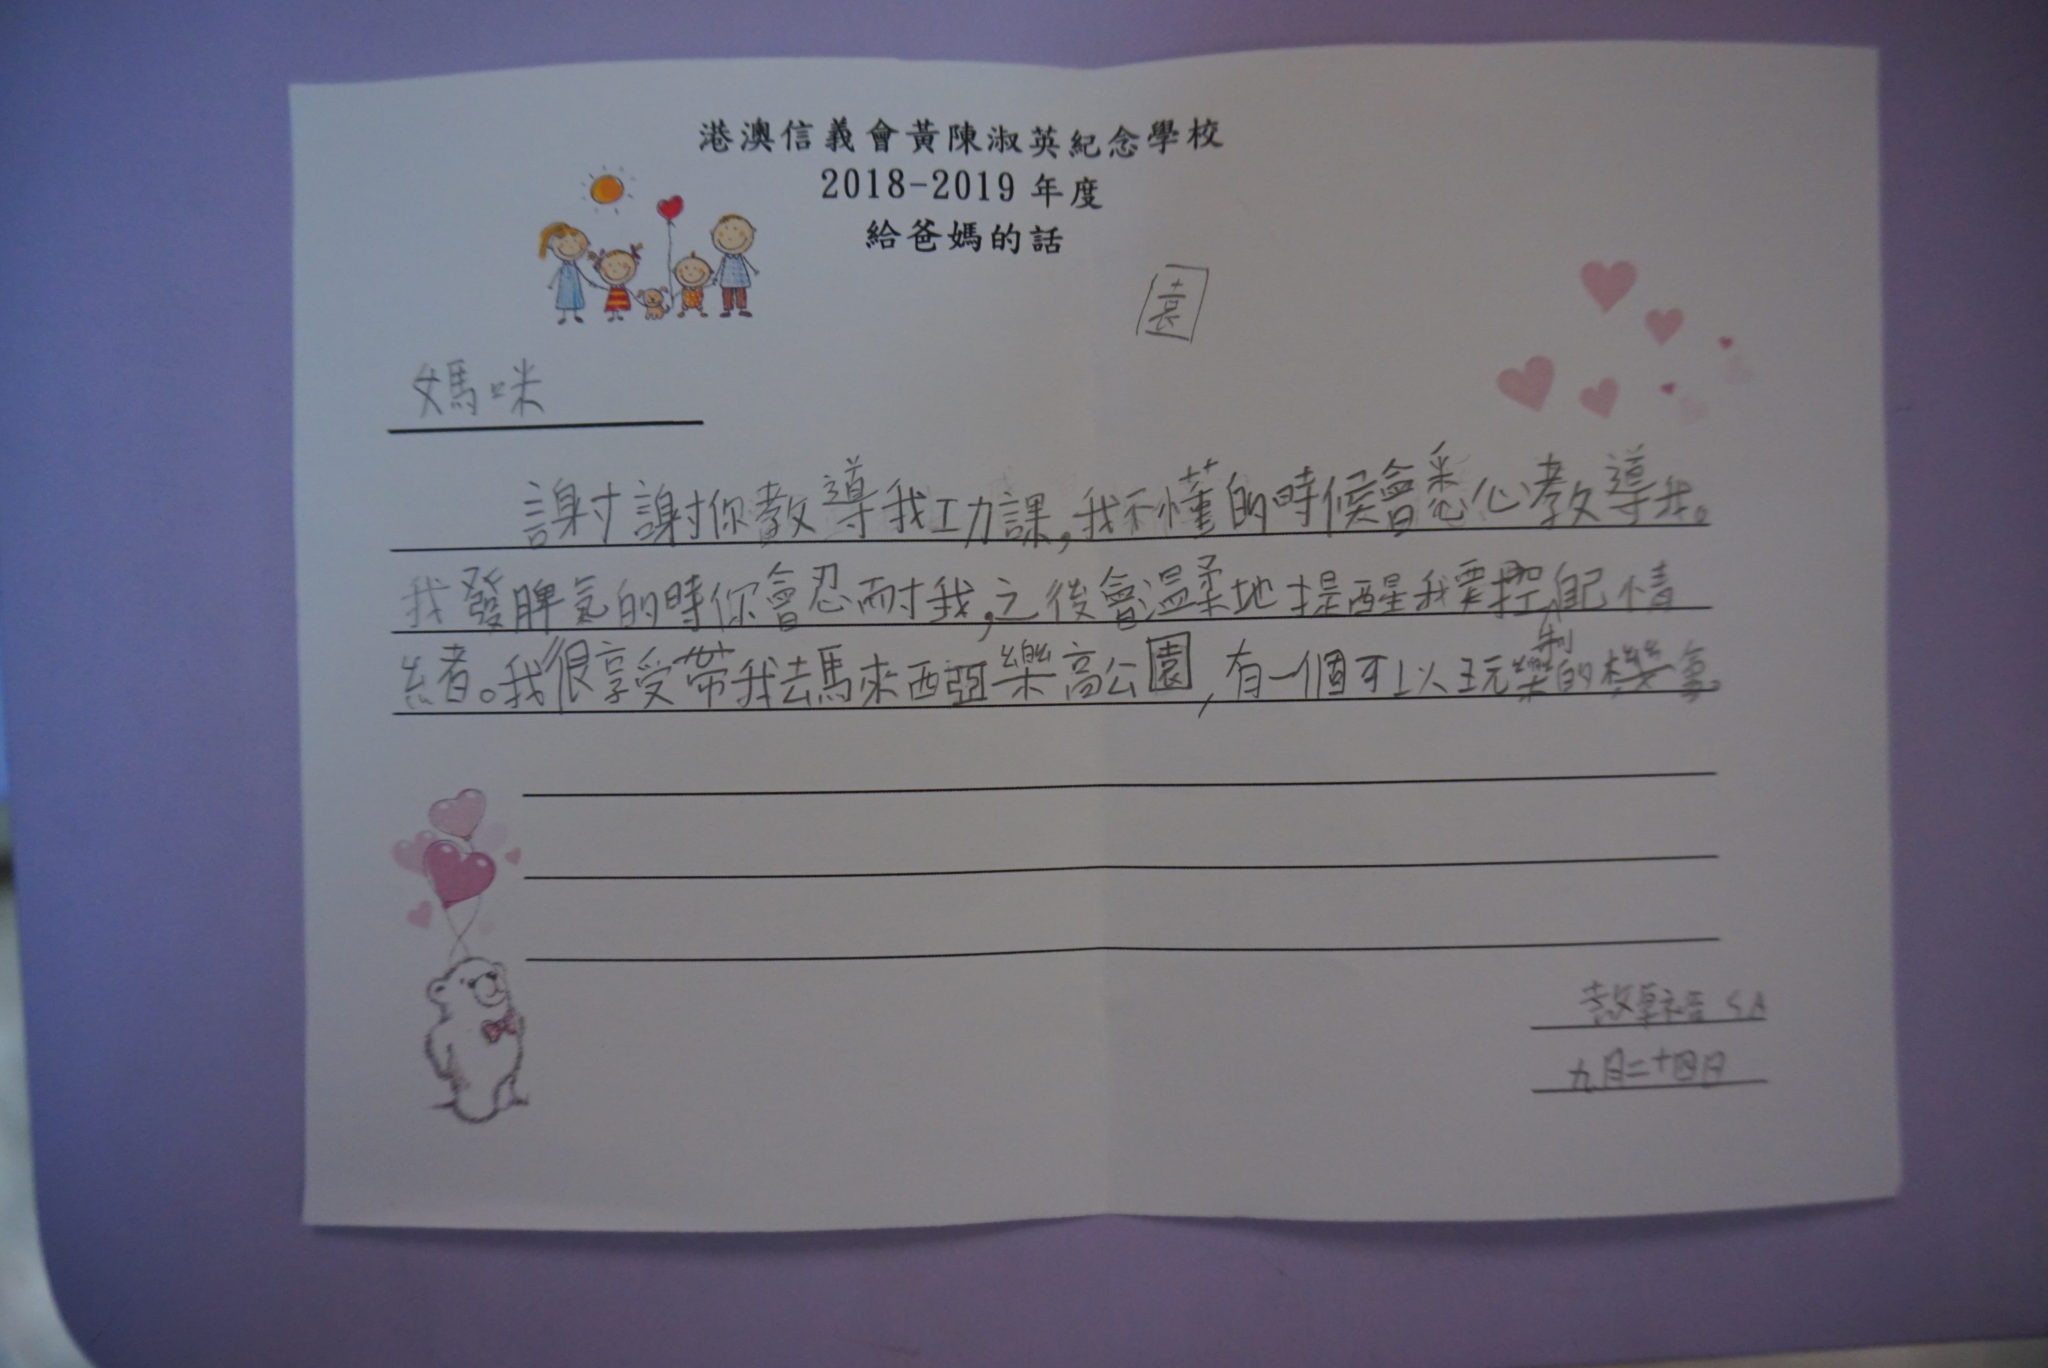 港澳信義會黃陳淑英紀念學校
2018-2019 年度
給爸媽的話
園
媽咪
謝謝你教導我功課,我不懂的時候會悉心教導我。
我發脾氣的時你會忍耐我,之後會溫柔地提醒我要控制自己情
緒。我很享受帶我去馬來西亞樂高公園,有一個可以玩樂的機會。
5A
九月二十四日